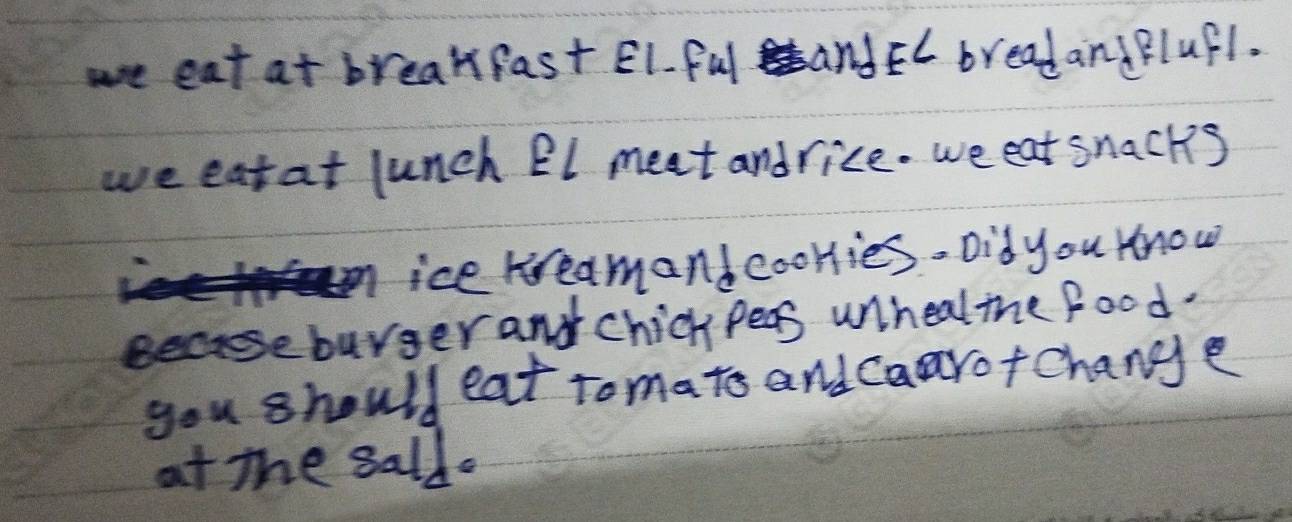 we eat at breakfast El-ful and EL bread and Flufl.
we eat at lunch El meat and rice. we eat snacks
ice kream and cookies. Did you know
Becase burger and chick peas unhealthe food.
you should eat tomato and caarot change
at the sald.